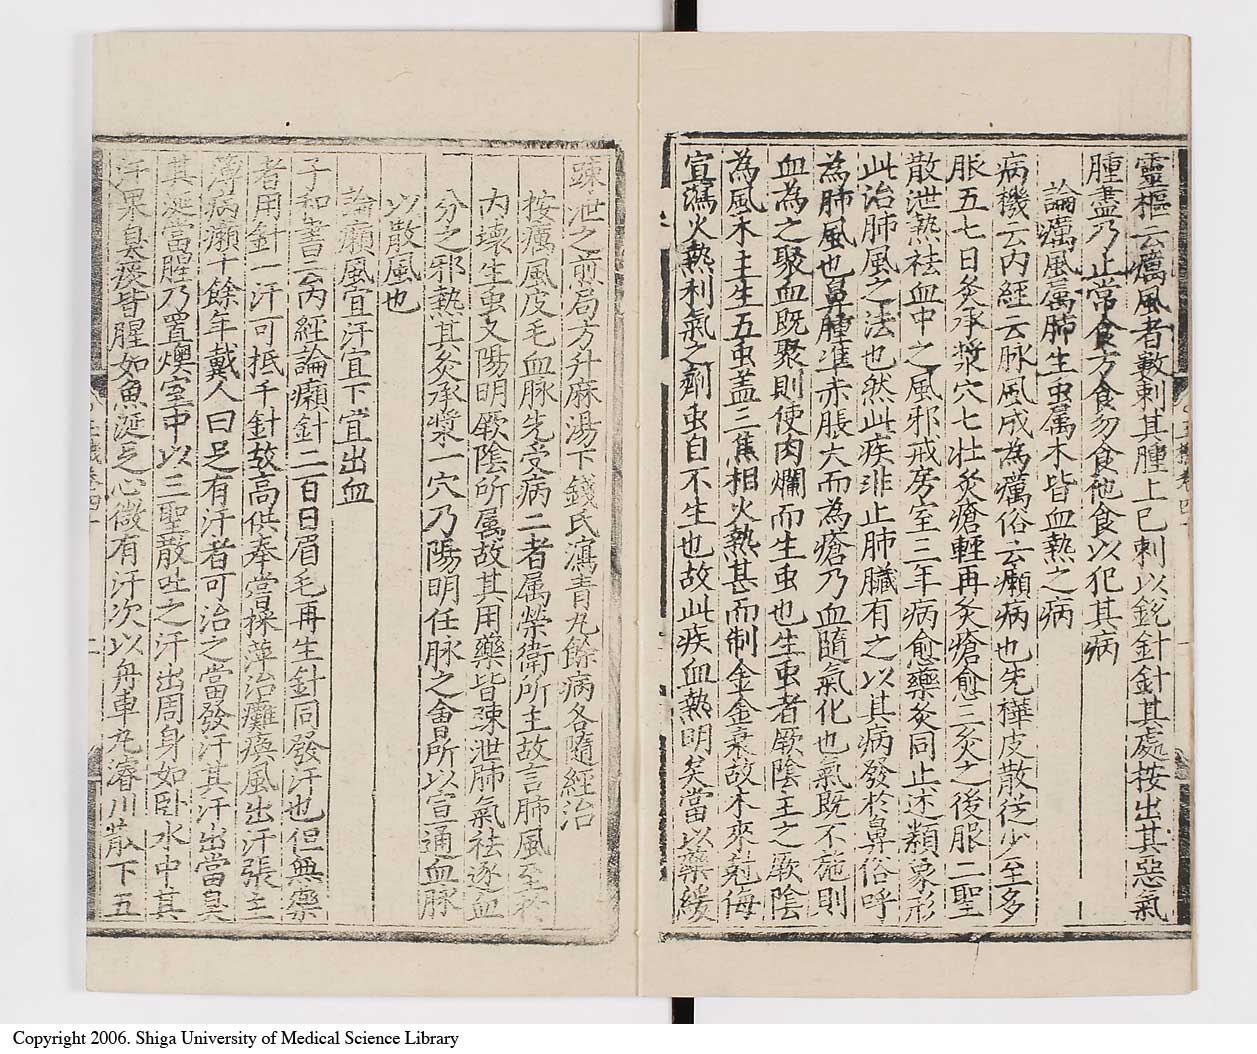 靈樞云癘風者數刺其腫上已刺以銳針針其處按出其惡氣
腫盡乃止常食方食勿食他食以犯其病
論癘風属肺生虫属木皆血熱之病
病機云内經云脉風成為癘俗云癩病也先樺皮散従少至多
服五七日灸承漿穴七壮灸瘡輕再灸瘡愈三灸之後服二聖
散泄熱祛血中之風邪戒房室三年病愈藥灸同止述類象形
此治肺風之法也然此疾非止肺臓有之以其病發於鼻俗呼
為肺風也鼻腫準赤脹大而為瘡乃血隨氣化也氣既不施則
血為之聚血既聚則使肉爛而生虫也生虫者厥陰主之厥陰
為風木主生五虫盖三焦相火熱甚而制金金衰故木來尅侮
宜瀉火熱利氣之劑虫自不生也故此疾血熱明矣當以藥緩
踈泄之煎局方升麻湯下錢氏瀉青丸餘病各隨經治
按癘風皮毛血脉先受病二者属榮衛所主故言肺風至於
内壊生虫又陽明厥陰所属故其用藥皆踈泄肺氣祛逐血
分之邪熱其灸承漿一穴乃陽明任脉之會所以宣通血脉
以散風也
論癩風宜汗宜下宜出血
子和書云内經論癩針二百日眉毛再生針同發汗也但無藥
者用針一汗可抵千針故高供奉嘗採萍治癱瘓風出汗張主
簿病癩十餘年戴人曰足有汗者可治之當發汗其汗出當臭
其涎當腥乃置燠室中以三聖散吐之汗出周身如卧水中其
汗果臭痰皆腥如魚涎足心微有汗次以舟車丸濬川散下五
Copyright 2006. Shiga University of Medical Science Library